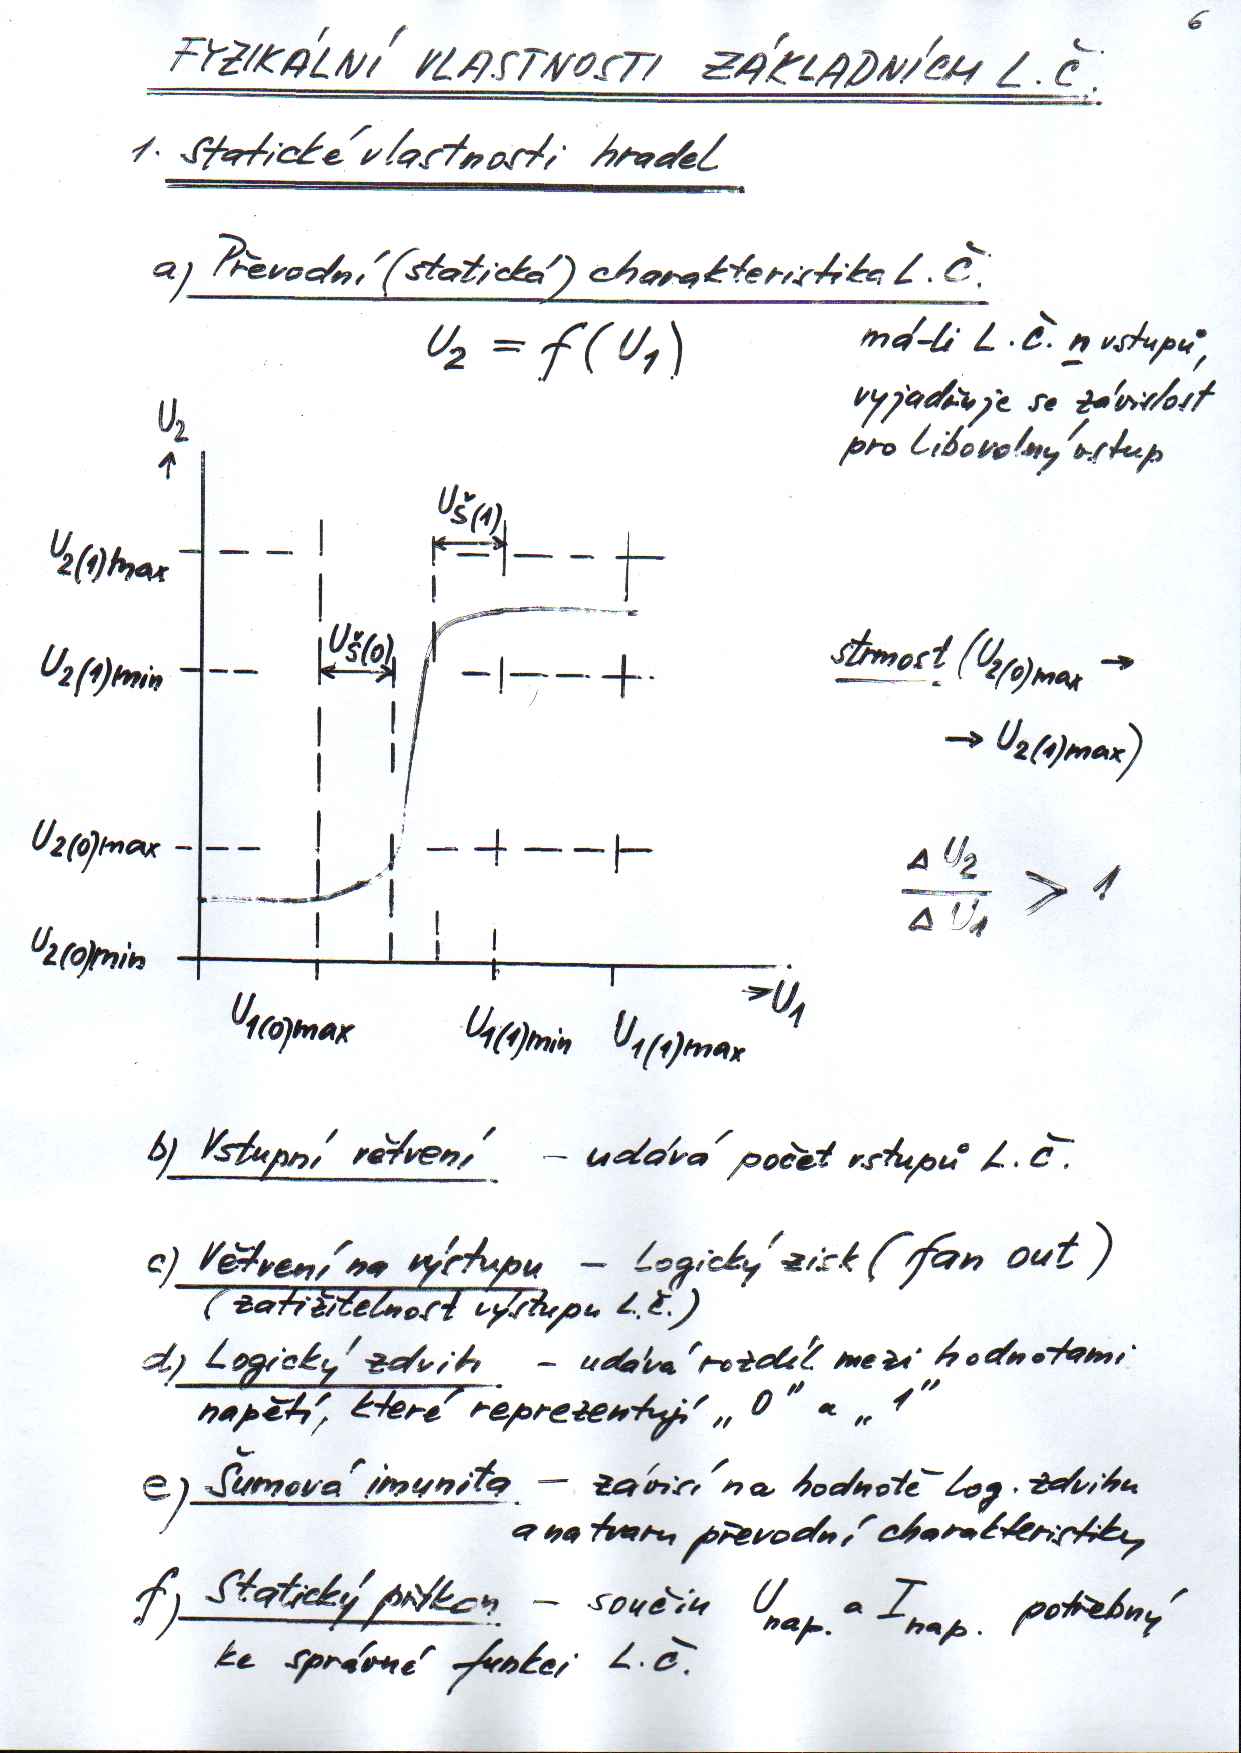 6
FYZIKÁLNÍ VLASTNOSTI ZÁKLADNÍCH L.Č.
1. Statické vlastnosti hradel
a) Převodní (statická) charakteristika L.Č.
U2 = f(U1)
má-li L.Č. n vstupů,
vyjadřuje se závislost
pro libovolný vstup
U2
UŠ(1)
U2(1)max
UŠ(0)
U2(1)min
strmost (U2(0)max →
→ U2(1)max)
U2(0)max
Δ U2
Δ U1
> 1
U2(0)min
→U1
U1(0)max
U1(1)min
U1(1)max
b) Vstupní větvení - udává počet vstupů L.Č.
c) Větvení na výstupu - Logický zisk (fan out)
(zatižitelnost výstupu L.č.)
d) Logický zdvih - udává rozdíl mezi hodnotami
napětí, které reprezentují „0" a „1"
e) Šumová imunita - závisí na hodnotě log. zdvihu
a na tvaru převodní charakteristiky
f) Statický příkon - součin Unap. a Inap. potřebný
ke správné funkci L.Č.